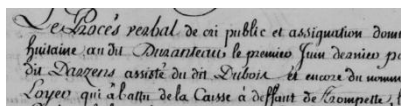 Le Procés verbal de cri public et assignation donn
huitaine au dit Duranteau, le premier Juin dernier pa
dit Darzens assisté du dit Dubois et encore du nomm
Loyer qui à battu de la Caisse à deffaut de trompette,